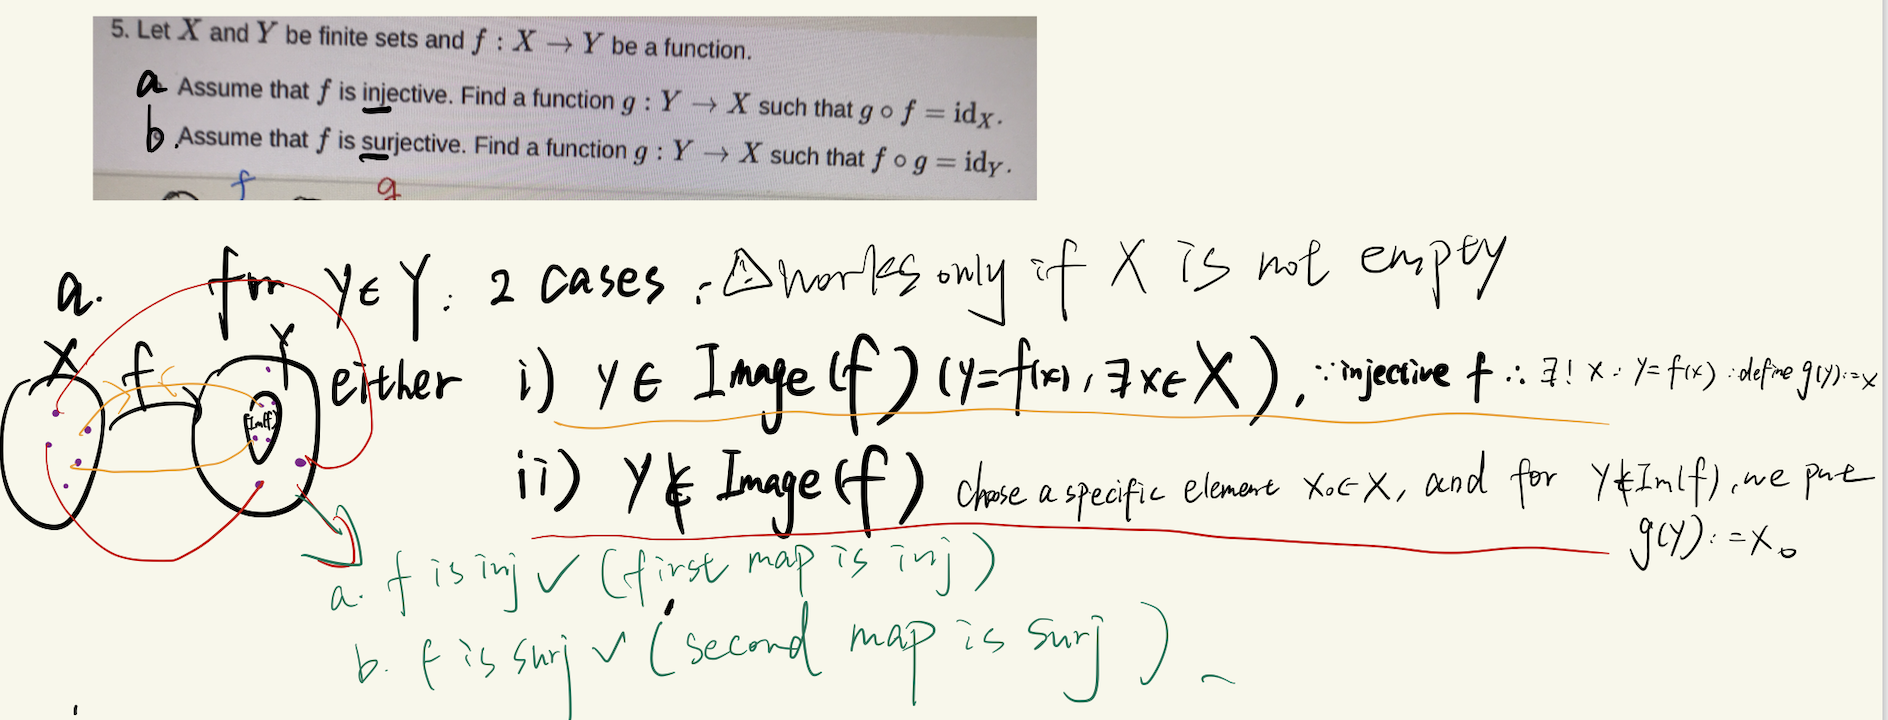 5. Let X and Y be finite sets and f : X → Y be a function.
a Assume that f is injective. Find a function g : Y → X such that g ∘ f = id_X.
b. Assume that f is surjective. Find a function g : Y → X such that f ∘ g = id_Y.
f g
a. for y ∈ Y : 2 cases . ⚠ works only if X is not empty
X f Y
either i) y ∈ Image (f) (y=f(x), ∃x∈X), ∵ injective f ∴ ∃! x : y = f(x) : define g(y):=x
Im(f)
ii) y ∉ Image (f) choose a specific element x₀∈X, and for y∉Im(f), we put
g(y):=x₀
a. f is inj ✓ (first map is inj)
b. f is surj ✓ (second map is surj)